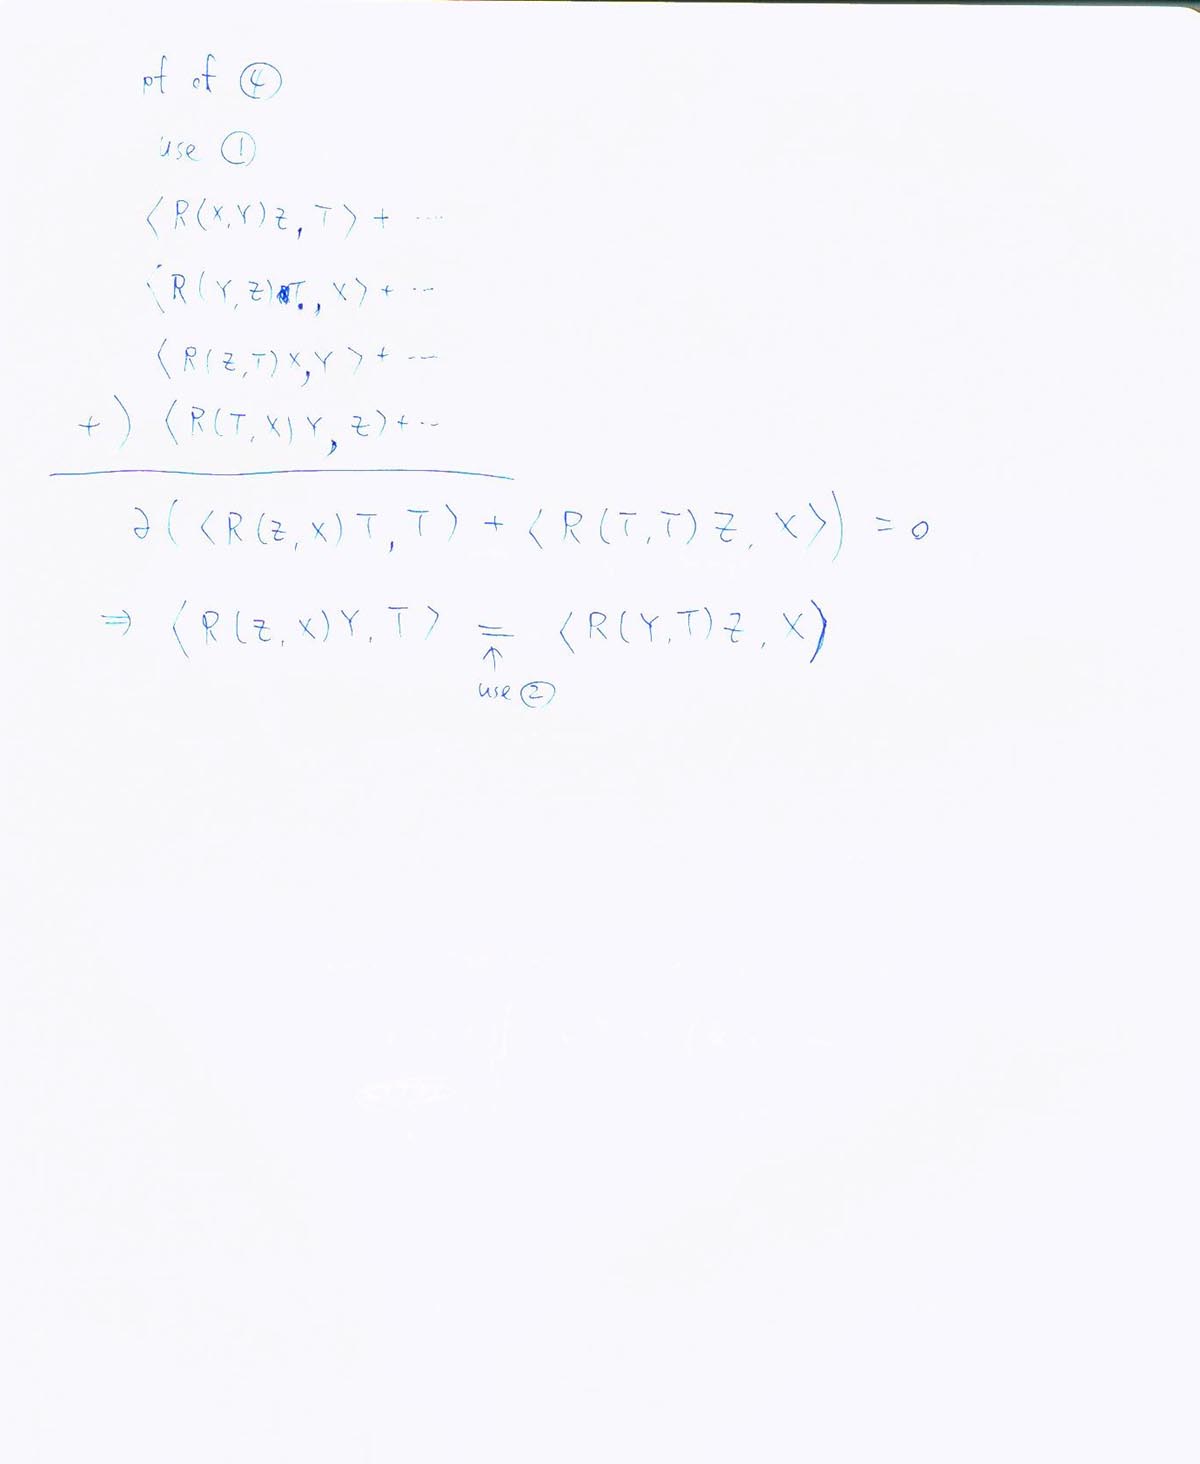 pf of ④
use ①
⟨R(X,Y)Z, T⟩ + ....
⟨R(Y,Z)T, X⟩ + ...
⟨R(Z,T)X, Y⟩ + ...
+) ⟨R(T,X)Y, Z⟩ + ...
2(⟨R(Z,X)T, T⟩ + ⟨R(T,T)Z, X⟩) = 0
⇒ ⟨R(Z,X)Y, T⟩ = ⟨R(Y,T)Z, X⟩
↑
use ②